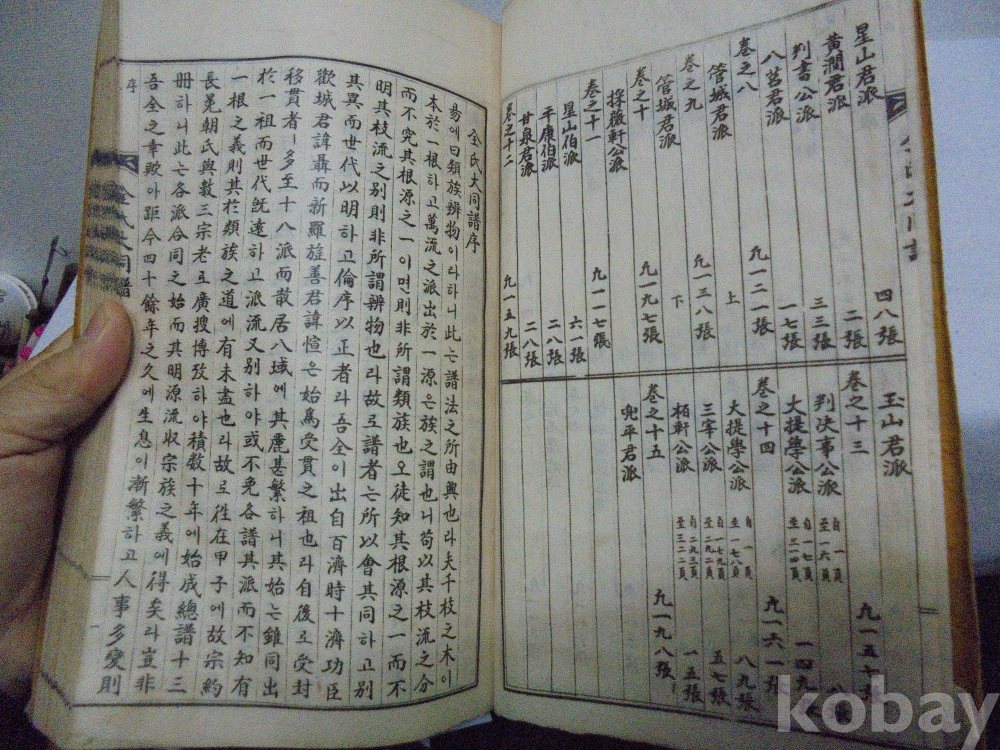 星山君派 四八張
黃澗君派 二張
判書公派 三三張
八莒君派 一七張
卷之八 凡一二一張
管城君派 上
卷之九 凡一三八張
管城君派 下
卷之十 凡一九七張
採薇軒公派
卷之十一 凡一一七張
星山伯派 六一張
平康伯派 二八張
甘泉君派 二八張
卷之十二 凡一五九張
玉山君派
卷之十三 凡一五七張
判決事公派 自一頁 至一六頁 八張
大提學公派 自一七頁 至三一四頁 一四九張
卷之十四 凡一六一張
大提學公派 自一頁 至一七八頁 八九張
三宰公派 自一七九頁 至二九二頁 五七張
栢軒公派 自二九三頁 至三二二頁 一五張
卷之十五 凡一九八張
兜平君派
全氏大同譜序
易에曰類族辨物이라하니此는譜法之所由興也라夫千枝之木이
本於一根하고萬流之派出於一源은族之謂也니苟以其枝流之分
而不究其根源之一이면則非所謂類族也오徒知其根源之一而不
明其枝流之別則非所謂辨物也라故로譜者는所以會其同하고別
其異而世代以明하고倫序以正者라吾全이出自百濟時十濟功臣
歡城君諱聶而新羅旌善君諱愃은始爲受貫之祖也라自後로受封
移貫者ㅣ多至十八派而散居八域에其麗甚繁하니其始는雖同出
於一祖而世代旣遠하고派流又別하야或不免各譜其派而不知有
一根之義則其於類族之道에有未盡也라故로徃在甲子에故宗約
長冕朝氏與數三宗老로廣搜博攷하야積數十年에始成總譜十三
册하니此는各派合同之始而其明源流收宗族之義에得矣라豈非
吾全之幸歟아距今四十餘年之久에生息이漸繁하고人事多變則
序
全氏大同譜
kobay